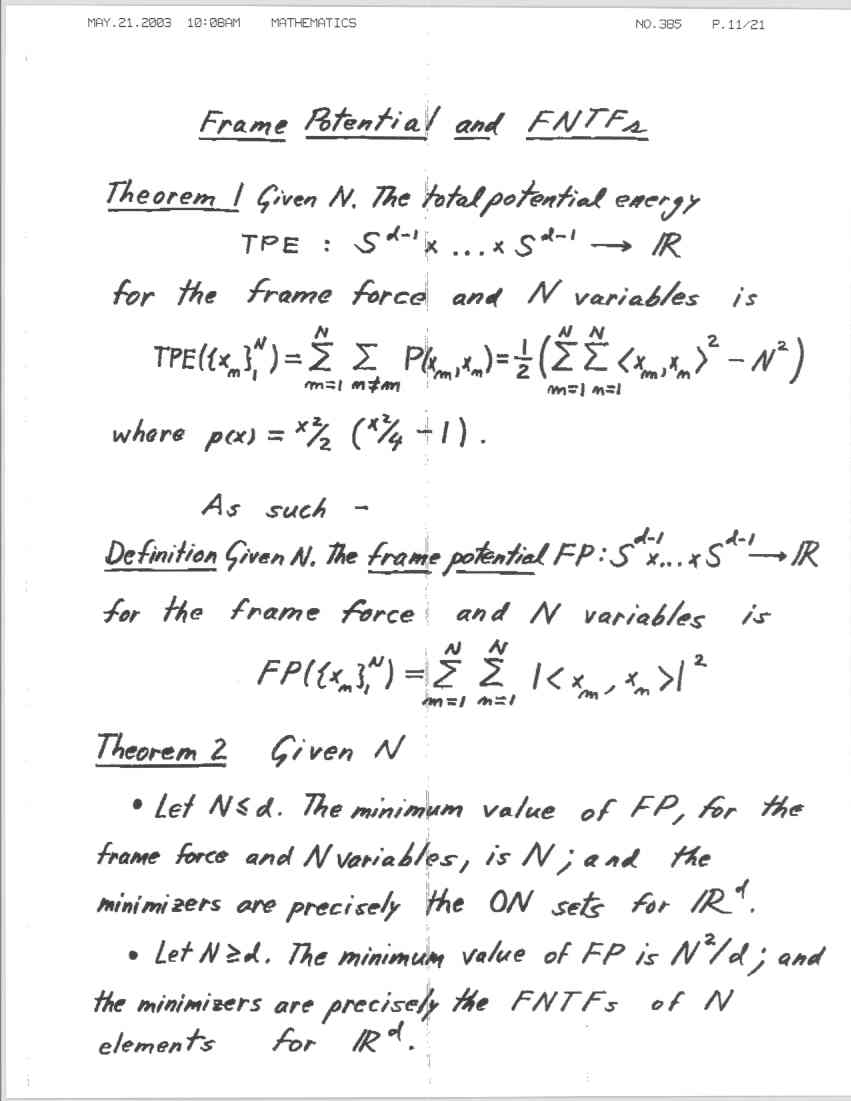 MAY.21.2003 10:08AM MATHEMATICS NO.385 P.11/21
Frame Potential and FNTFs
Theorem 1 Given N. The total potential energy
TPE : S^{d-1} x ... x S^{d-1} → ℝ
for the frame force and N variables is
TPE({x_m}_1^N) = Σ_{m=1}^N Σ_{m≠n} P(x_m, x_n) = 1/2 (Σ_{m=1}^N Σ_{n=1}^N <x_m, x_n>^2 - N^2)
where p(x) = x²/2 (x²/4 - 1).
As such -
Definition Given N. The frame potential FP: S^{d-1} x...x S^{d-1} → ℝ
for the frame force and N variables is
FP({x_m}_1^N) = Σ_{m=1}^N Σ_{n=1}^N |<x_m, x_n>|^2
Theorem 2 Given N
• Let N ≤ d. The minimum value of FP, for the
frame force and N variables, is N; and the
minimizers are precisely the ON sets for ℝ^d.
• Let N ≥ d. The minimum value of FP is N²/d; and
the minimizers are precisely the FNTFs of N
elements for ℝ^d.